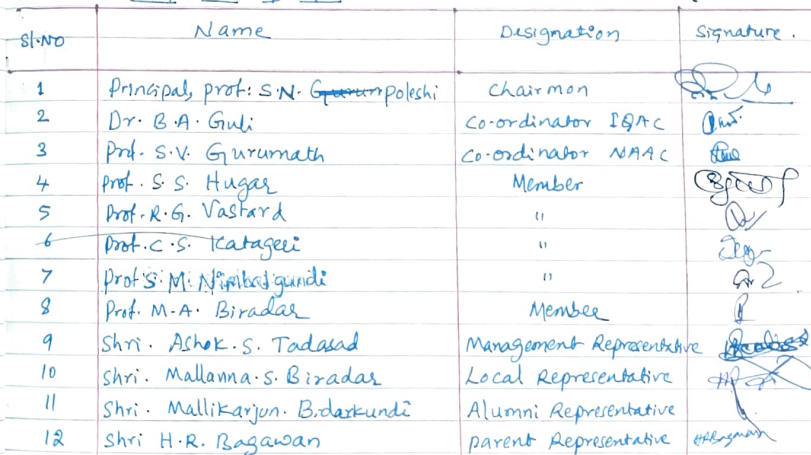 Sl.No Name Designation Signature.
1 Principal, prof: S.N. Poleshi Chairmon
2 Dr. B.A. Guli Co-ordinator IQAC
3 Prof. S.V. Gurumath Co-ordinator NAAC
4 Prof. S.S. Hugar Member
5 Prof. R.G. Vastard "
6 Prof. C.S. Katageri "
7 Prof S.M. Nimbalgundi "
8 Prof. M.A. Biradar Member
9 Shri. Ashok.S. Tadasad Management Representative
10 Shri. Mallanna.S. Biradar Local Representative
11 Shri. Mallikarjun. B.darkundi Alumni Representative
12 Shri H.R. Bagawan parent Representative HRBagawan